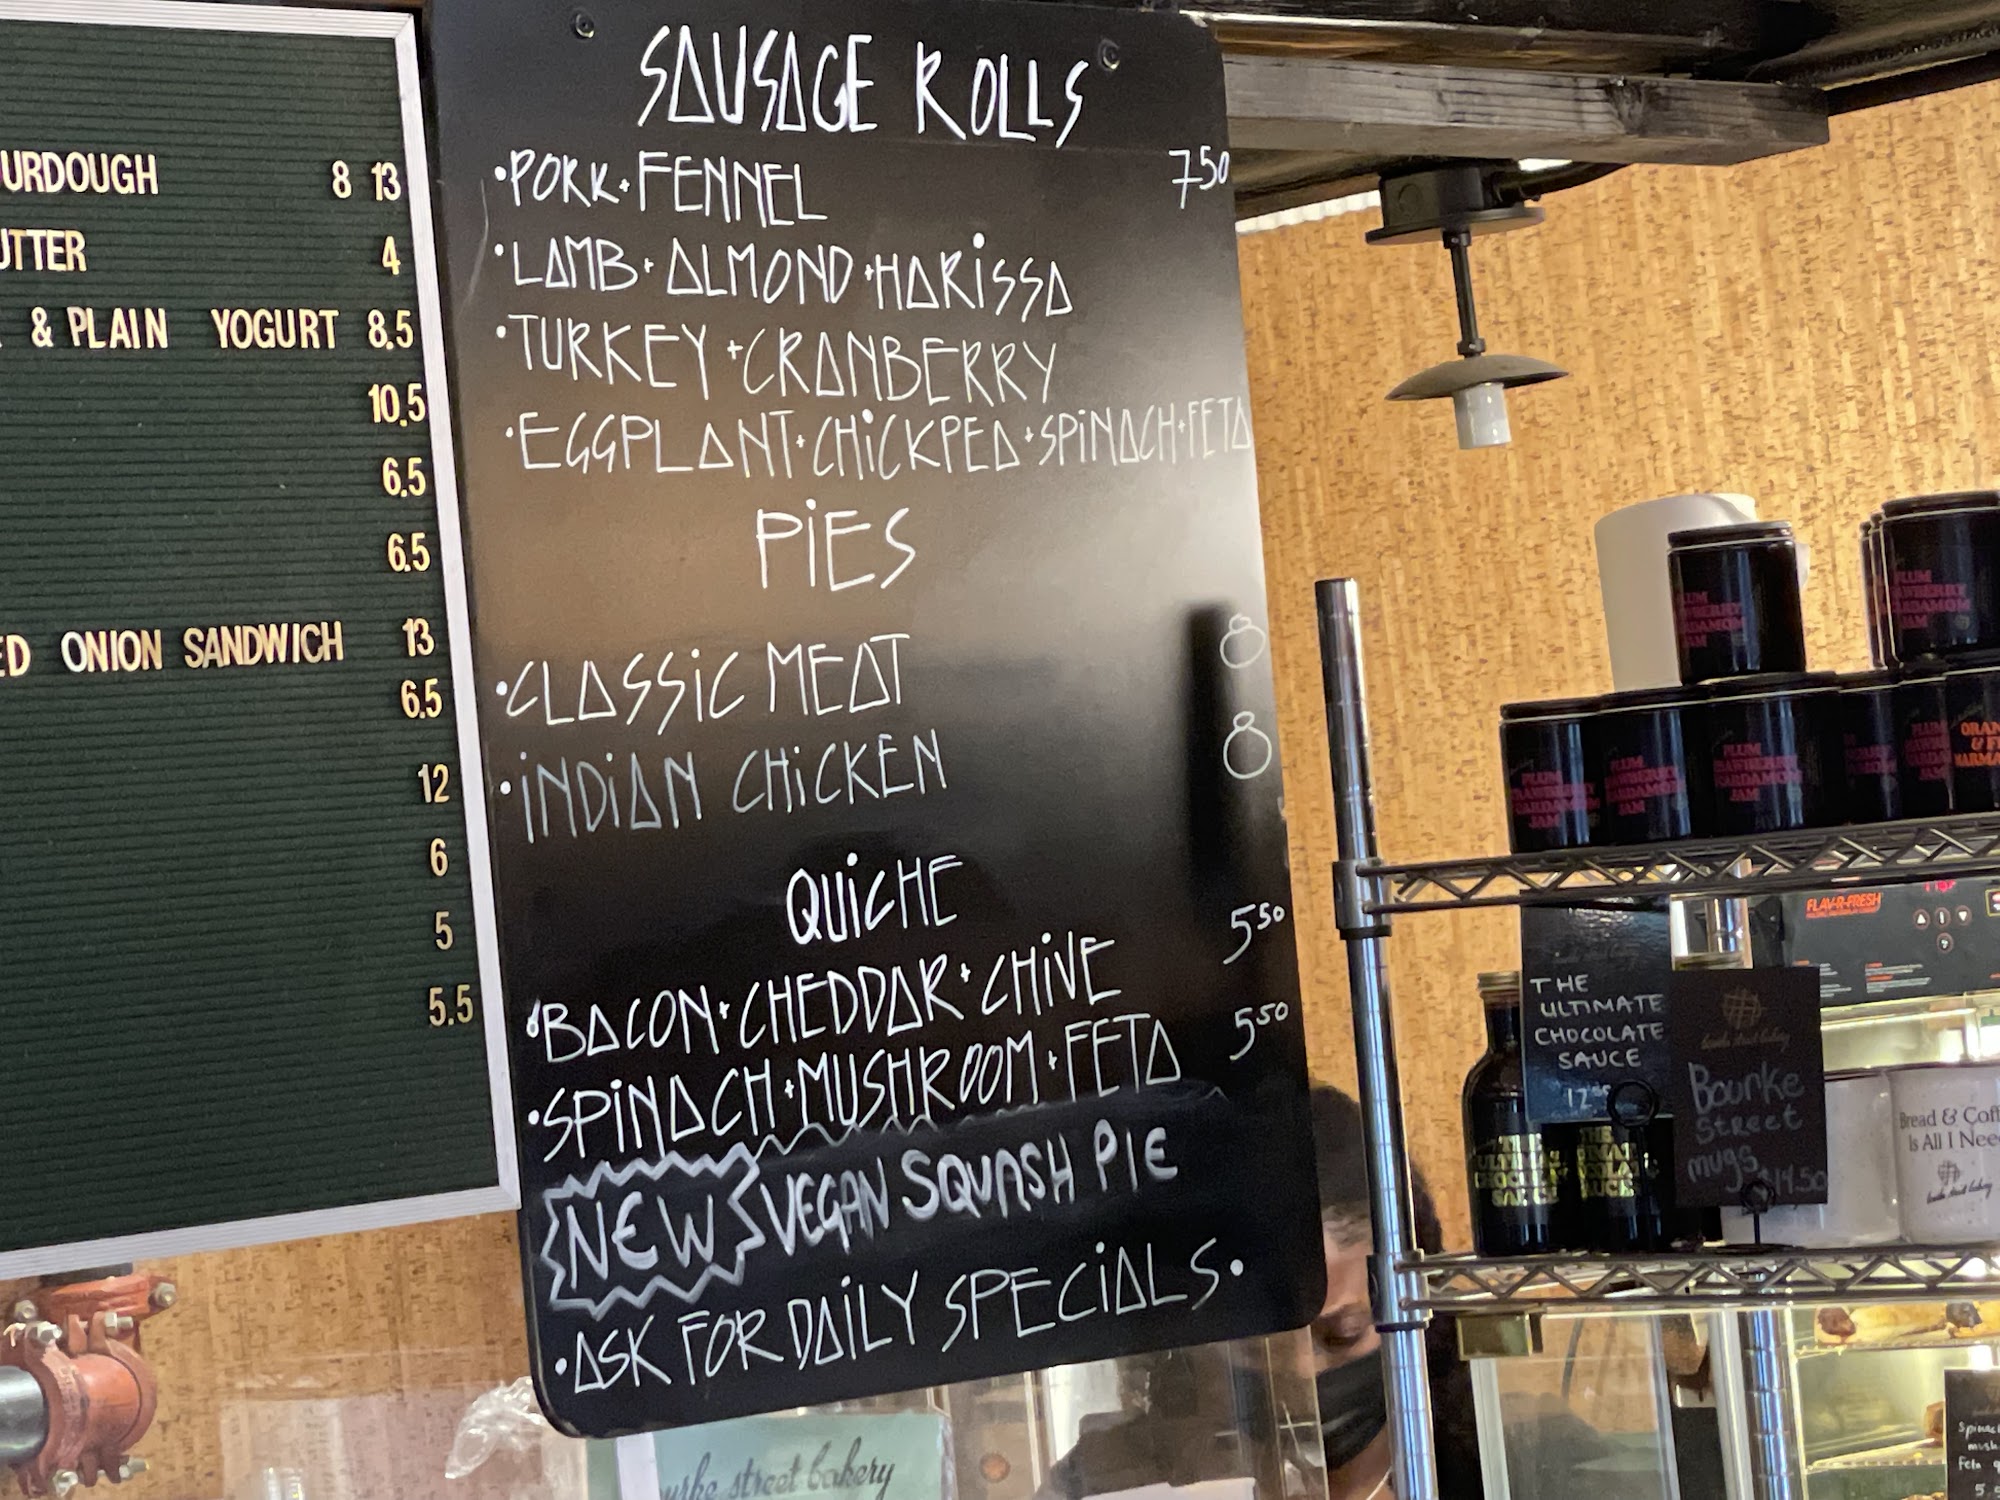 URDOUGH 8 13
UTTER 4
& PLAIN YOGURT 8.5
10.5
6.5
6.5
ED ONION SANDWICH 13
6.5
12
6
5
5.5
SAUSAGE ROLLS
•PORK+FENNEL 7.50
•LAMB+ALMOND+HARISSA
•TURKEY+CRANBERRY
•EGGPLANT+CHICKPEA+SPINACH+FETA
PIES
•CLASSIC MEAT 8
•INDIAN CHICKEN 8
QUICHE
•BACON+CHEDDAR+CHIVE 5.50
•SPINACH+MUSHROOM+FETA 5.50
NEW VEGAN SQUASH PIE
•ASK FOR DAILY SPECIALS•
urke street bakery
PLUM
JAM
ORAN
& F
MARMA
FLAV-R-FRESH
THE
ULTIMATE
CHOCOLATE
SAUCE
12
Bourke
Street
mugs
$14.50
Bread & Coff
Is All I Nee
bourke street bakery
THE
ULTIMATE
CHOCOLATE
SAUCE
Spinac
mush
Feta
5.5